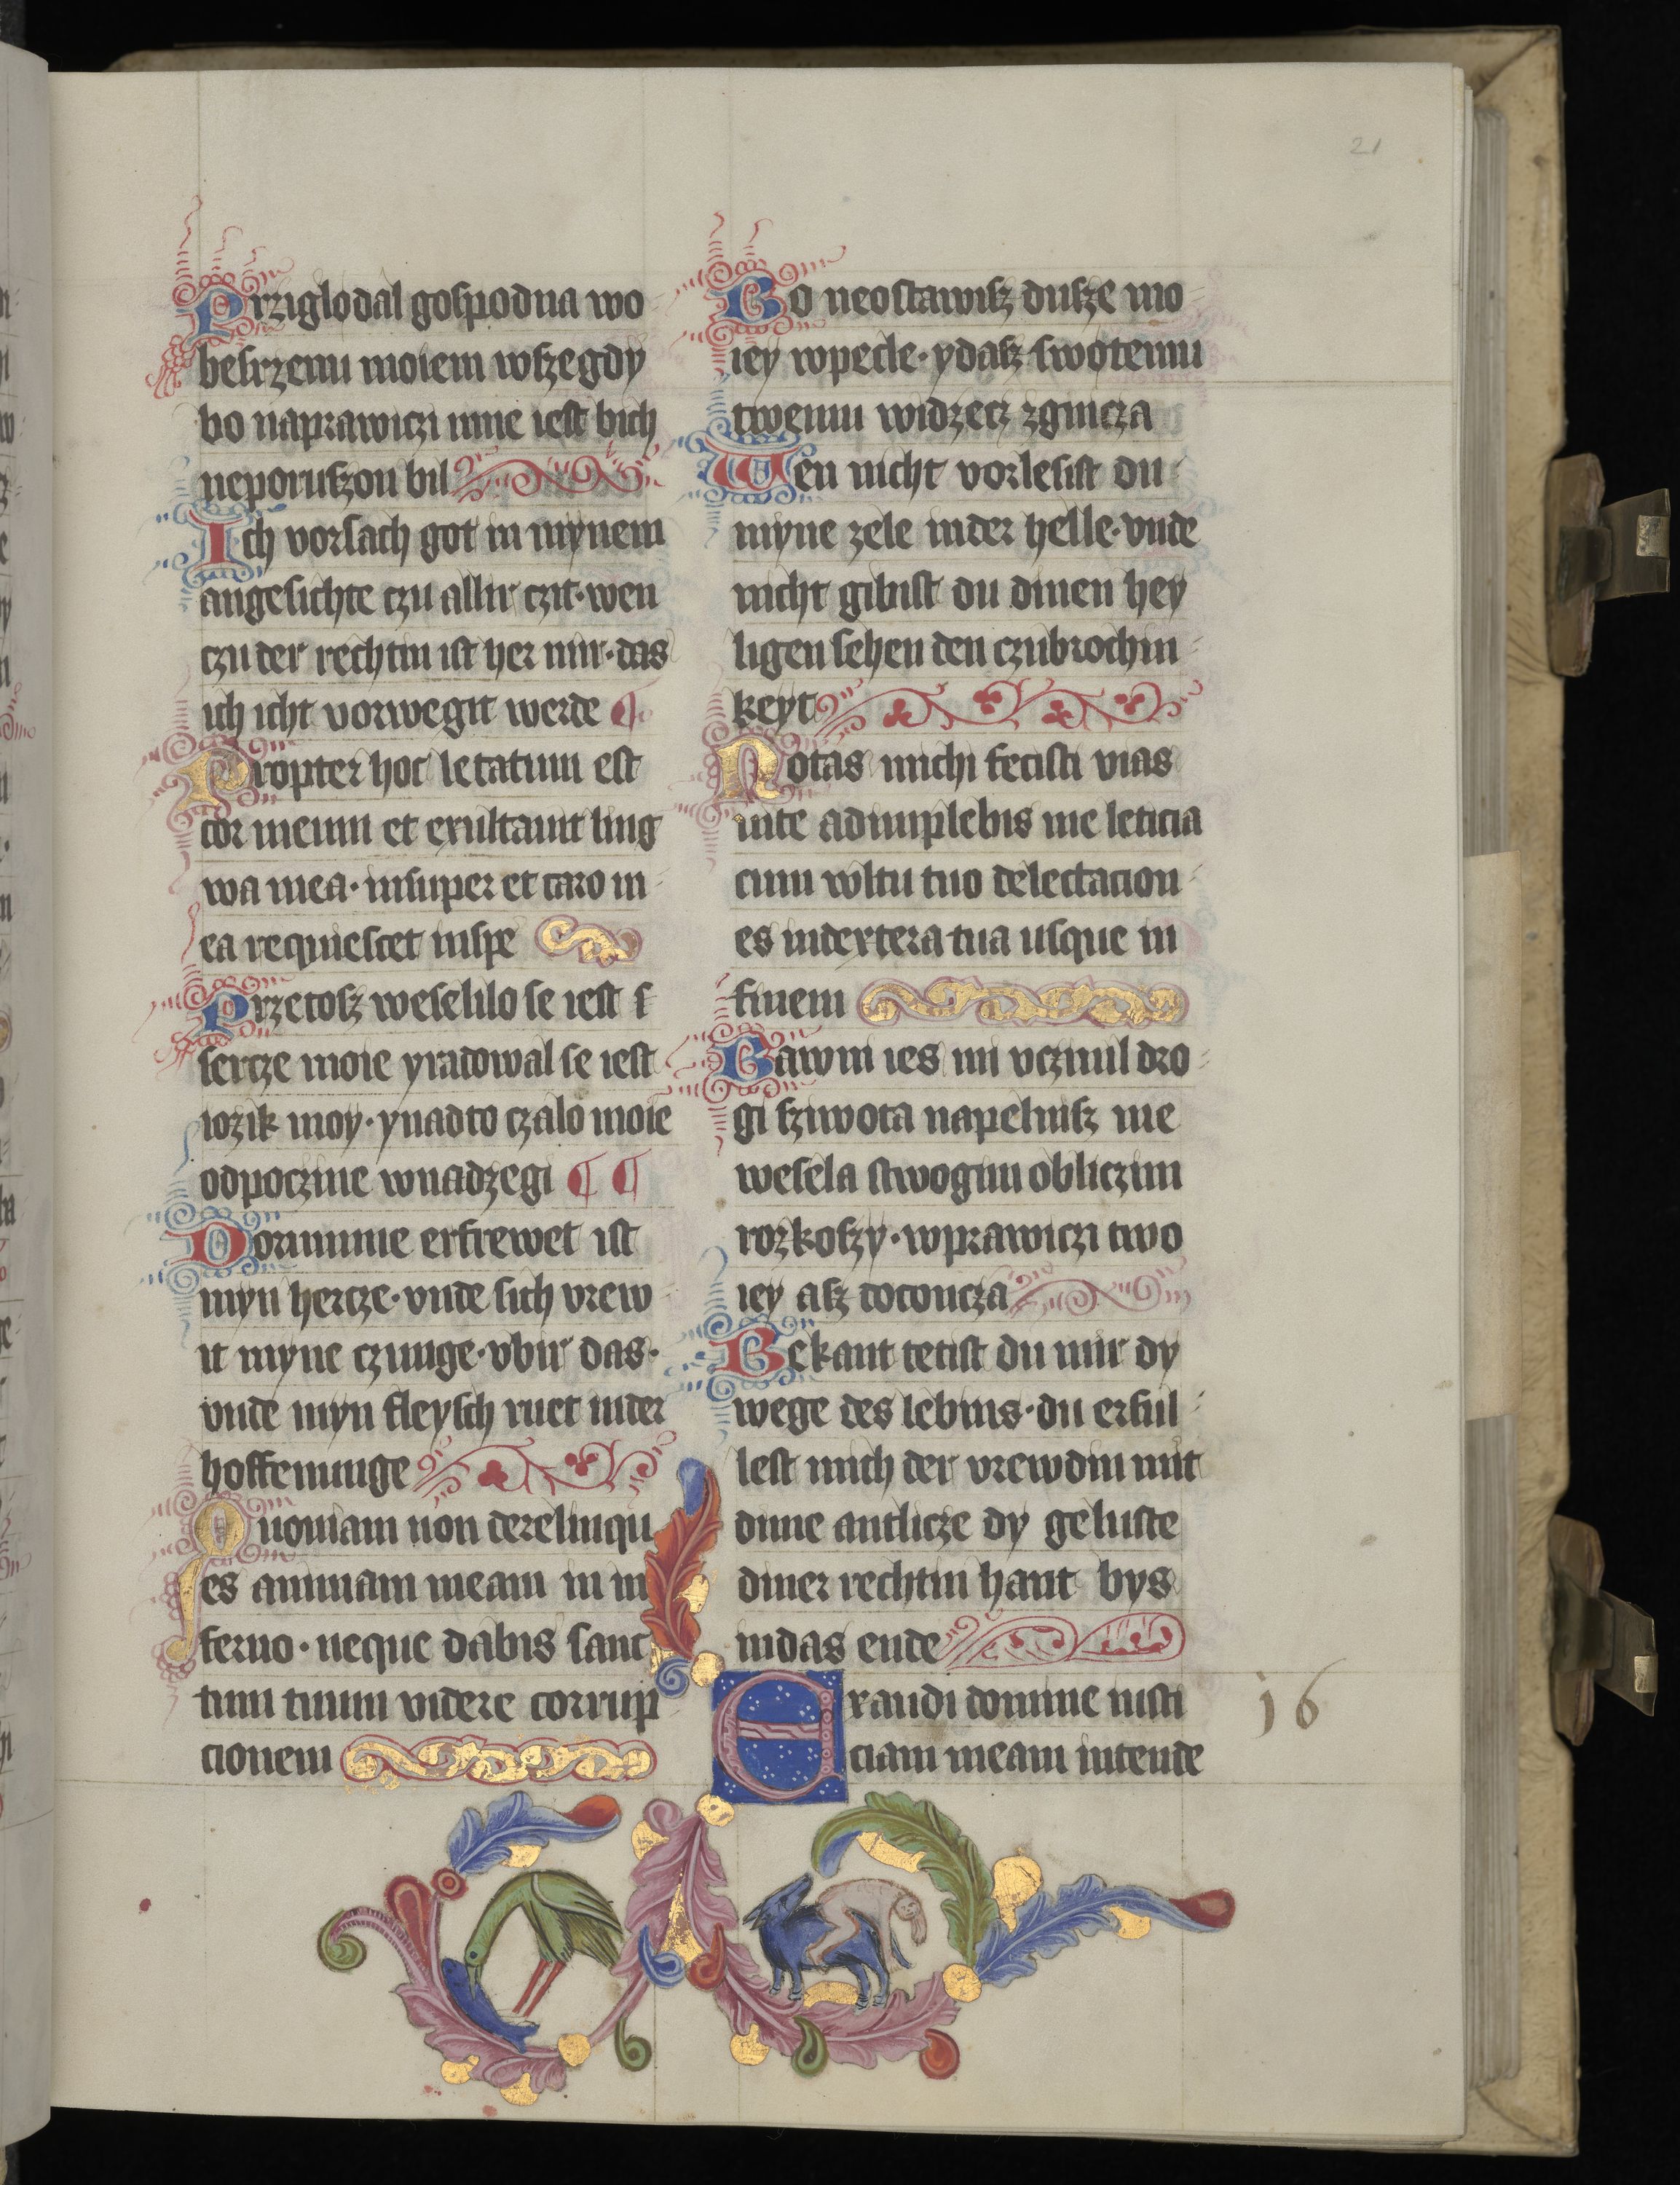 21
Prziglodal gospodna wo
besrzenu moiem wszegdy
bo naprawiczi mne iest bich
neporuszon bil
Ich vorsach got in mynem
angesichte czu allir czit·wen
czu der rechtin ist her mir·das
ich icht vorwegit werde
Propter hoc letatum est
cor meum et exultauit ling
wa mea·insuper et caro m
ea requiescet inspe
Przetosz weselilo se iest s
sercze moie yradowal se iest
iozik moy·ynadto czalo moie
odpoczine wnadzegi
Dorumme erfrewet ist
myn hercze·vnde sich vrew
it myne czunge·vbir das·
vnde myn fleysch ruet inder
hoffenunge
Quoniam non derelinqu
es animam meam in in
ferno·neque dabis sanc
tum tuum videre corrup
cionem
Bo neostawisz dusze mo
iey wpecle·ydasz swotemu
twemu widzecz zgincza
Wen nicht vorlesist du
myne zele inder helle·vnde
nicht gibist du dinen hey
ligen sehen den czubrochin
keyt
Notas michi fecisti vias
uite adimplebis me leticia
cum wltu tuo delectacion
es indextera tua usque in
finem
Gawni ies mi vczinil dro
gi sziwota napelnisz me
wesela stwogim obliczim
rozkoszy·wprawiczi two
iey asz dotoncza
Bekant tetist du mir dy
wege des lebins·du erful
lest mich der vrewdin mit
dime antlicze dy geluste
diner rechtin hant bys
indas ende
Exaudi domine iusti
ciam meam intende
16